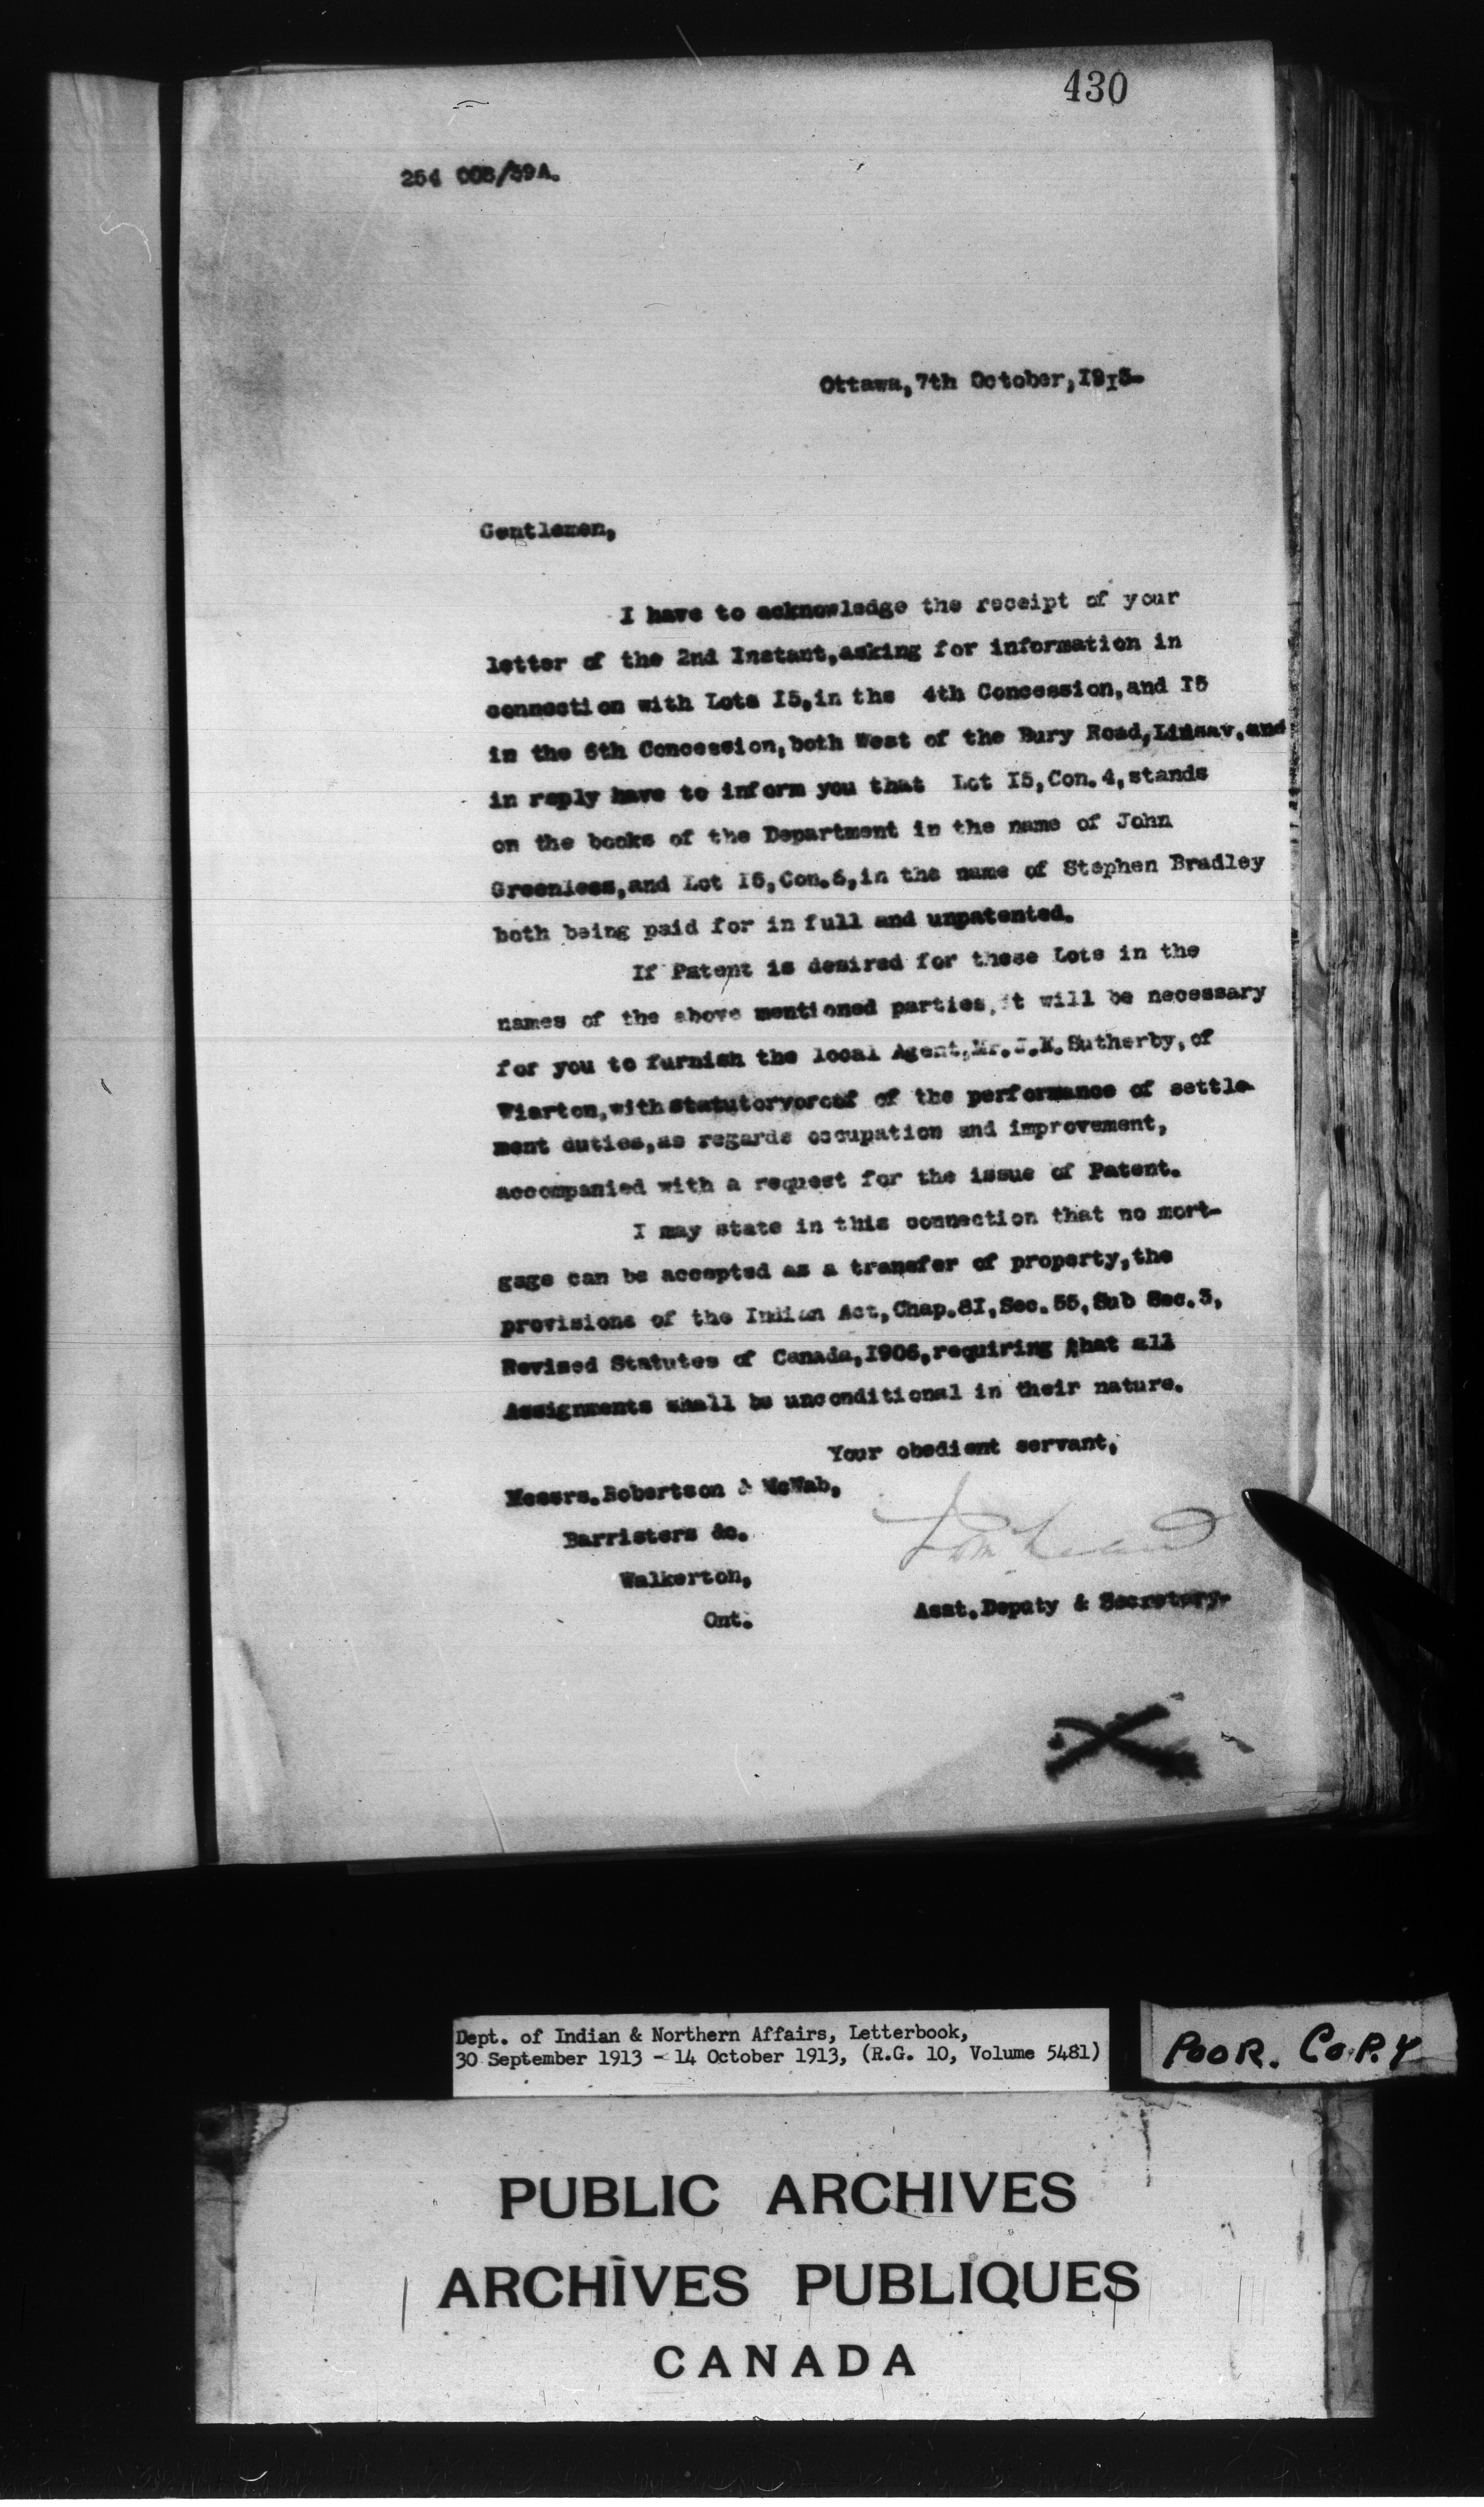 430
254 008/39A.
Ottawa, 7th October, 1913.
Gentlemen,
I have to acknowledge the receipt of your
letter of the 2nd Instant, asking for information in
connection with Lots 15, in the 4th Concession, and 15
in the 6th Concession, both West of the Bury Road, and
in reply have to inform you that Lot 15, Con. 4, stands
on the books of the Department in the name of John
Greenlees, and Lot 15, Con. 6, in the name of Stephen Bradley
both being paid for in full and unpatented.
If Patent is desired for these Lots in the
names of the above mentioned parties, it will be necessary
for you to furnish the local Agent, Mr. Sutherby, of
Wiarton, with statutory proof of the performance of settle-
ment duties, as regards occupation and improvement,
accompanied with a request for the issue of Patent.
I may state in this connection that no mort-
gage can be accepted as a transfer of property, the
provisions of the Indian Act, Chap. 81, Sec. 55, Sub Sec. 3,
Revised Statutes of Canada, 1906, requiring that all
Assignments shall be unconditional in their nature.
Your obedient servant,
Messrs. Robertson & McNab,
Barristers &c.
Walkerton,
Ont.
Asst. Deputy & Secretary.
Dept. of Indian & Northern Affairs, Letterbook,
30 September 1913 - 14 October 1913, (R.G. 10, Volume 5481)
POOR. COPY
PUBLIC ARCHIVES
ARCHIVES PUBLIQUES
CANADA